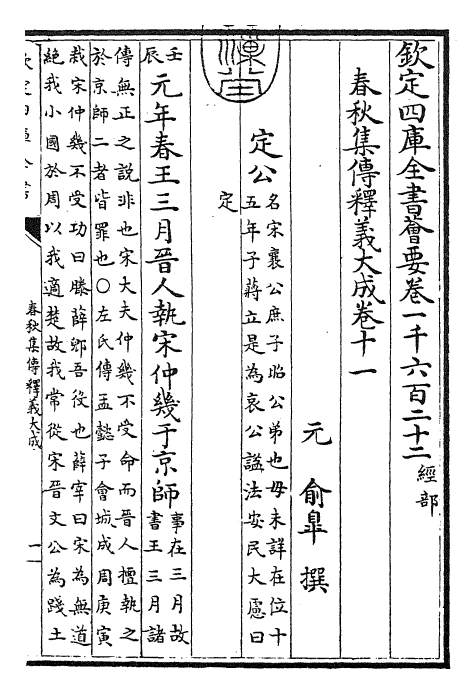 欽定四庫全書薈要卷一千六百二十二 經部
春秋集傳釋義大成卷十一
元 俞皐 撰
定公 名宋襄公庶子昭公弟也母未詳在位十
五年子蔣立是為哀公諡法安民大慮曰
定
壬辰 元年春王三月晉人執宋仲幾于京師 事在三月故
書王三月諸
傳無正之說非也宋大夫仲幾不受命而晉人擅執之
於京師二者皆罪也○左氏傳孟懿子會城成周庚寅
栽宋仲幾不受功曰滕薛郳吾役也薛宰曰宋為無道
絕我小國於周以我適楚故我常從宋晉文公為踐土
春秋集傳釋義大成
一